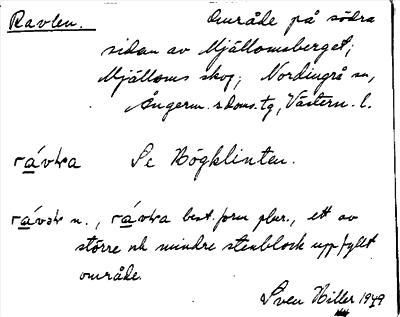 Ravlen. Område på södra
sidan av Mjällomsberget;
Mjälloms skog; Nordingrå sn,
Ångerm. s doms. tg, Västern. l.
rávka Se Högklinten.
rávək n., rávka best. form plur., ett av
större och mindre stenblock uppfyllt
område.
Sven Hiller 1949